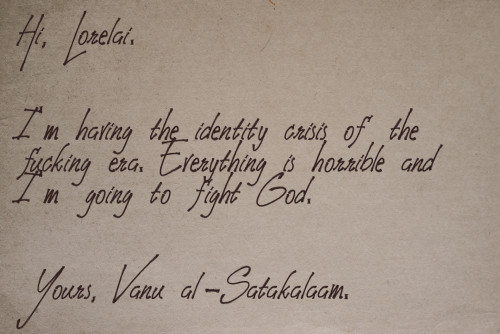 Hi, Lorelai.
I'm having the identity crisis of the
fucking era. Everything is horrible and
I'm going to fight God.
Yours, Vanu al-Satakalaam.